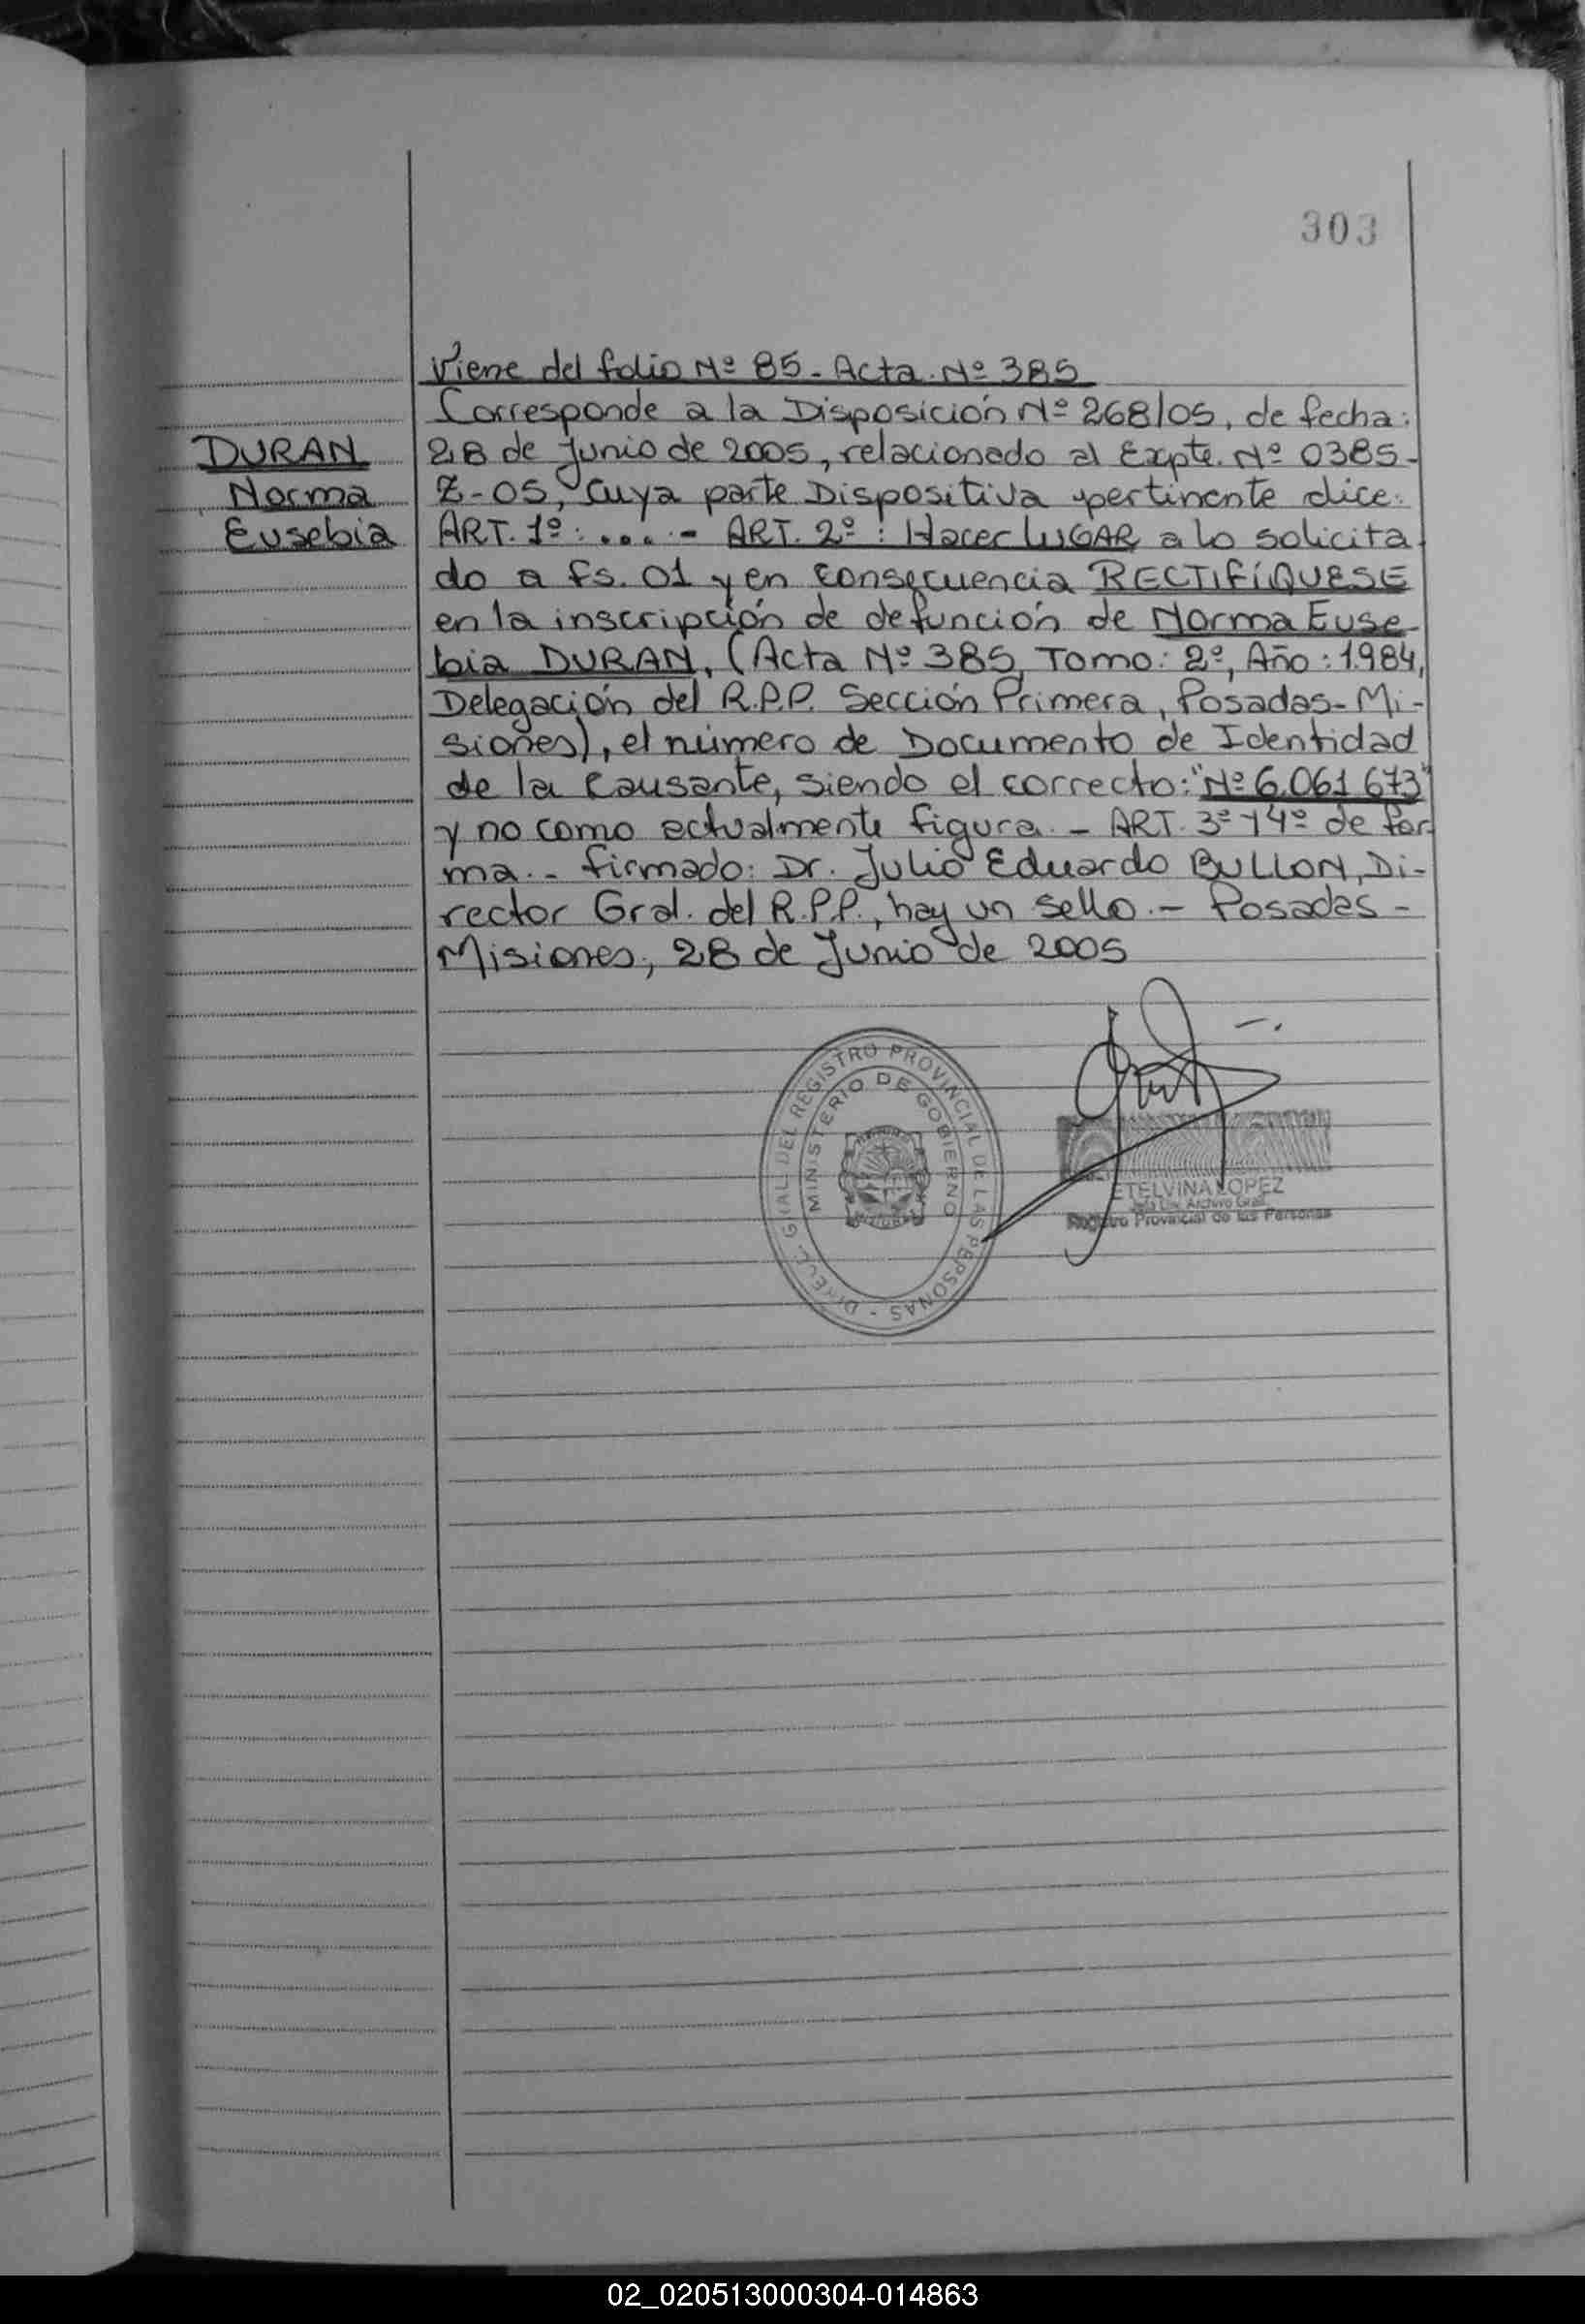 303
Viene del folio Nº 85 - Acta Nº 385
Corresponde a la Disposición Nº 268/05, de fecha:
DURAN
Norma
Eusebia
28 de Junio de 2005, relacionado al Expte. Nº 0385-
Z-05, Cuya parte Dispositiva pertinente dice:
ART. 1º: .... - ART. 2º: Hacer LUGAR a lo solicita
do a fs. 01 y en consecuencia RECTIFÍQUESE
en la inscripción de defunción de Norma Euse-
bia DURAN, (Acta Nº 385, Tomo: 2º, Año: 1.984,
Delegación del R.P.P. Sección Primera, Posadas - Mi-
siones), el número de Documento de Identidad
de la causante, siendo el correcto: "Nº 6.061.673"
y no como actualmente figura. - ART. 3º y 4º de for-
ma. - firmado: Dr. Julio Eduardo BULLON, Di-
rector Gral. del R.P.P., hay un sello. - Posadas -
Misiones, 28 de Junio de 2005
DIREC. GRAL. DEL REGISTRO PROVINCIAL DE LAS PERSONAS -
MINISTERIO DE GOBIERNO
ETELVINA LOPEZ
Archivo Gral.
Registro Provincial de las Personas
02_020513000304-014863